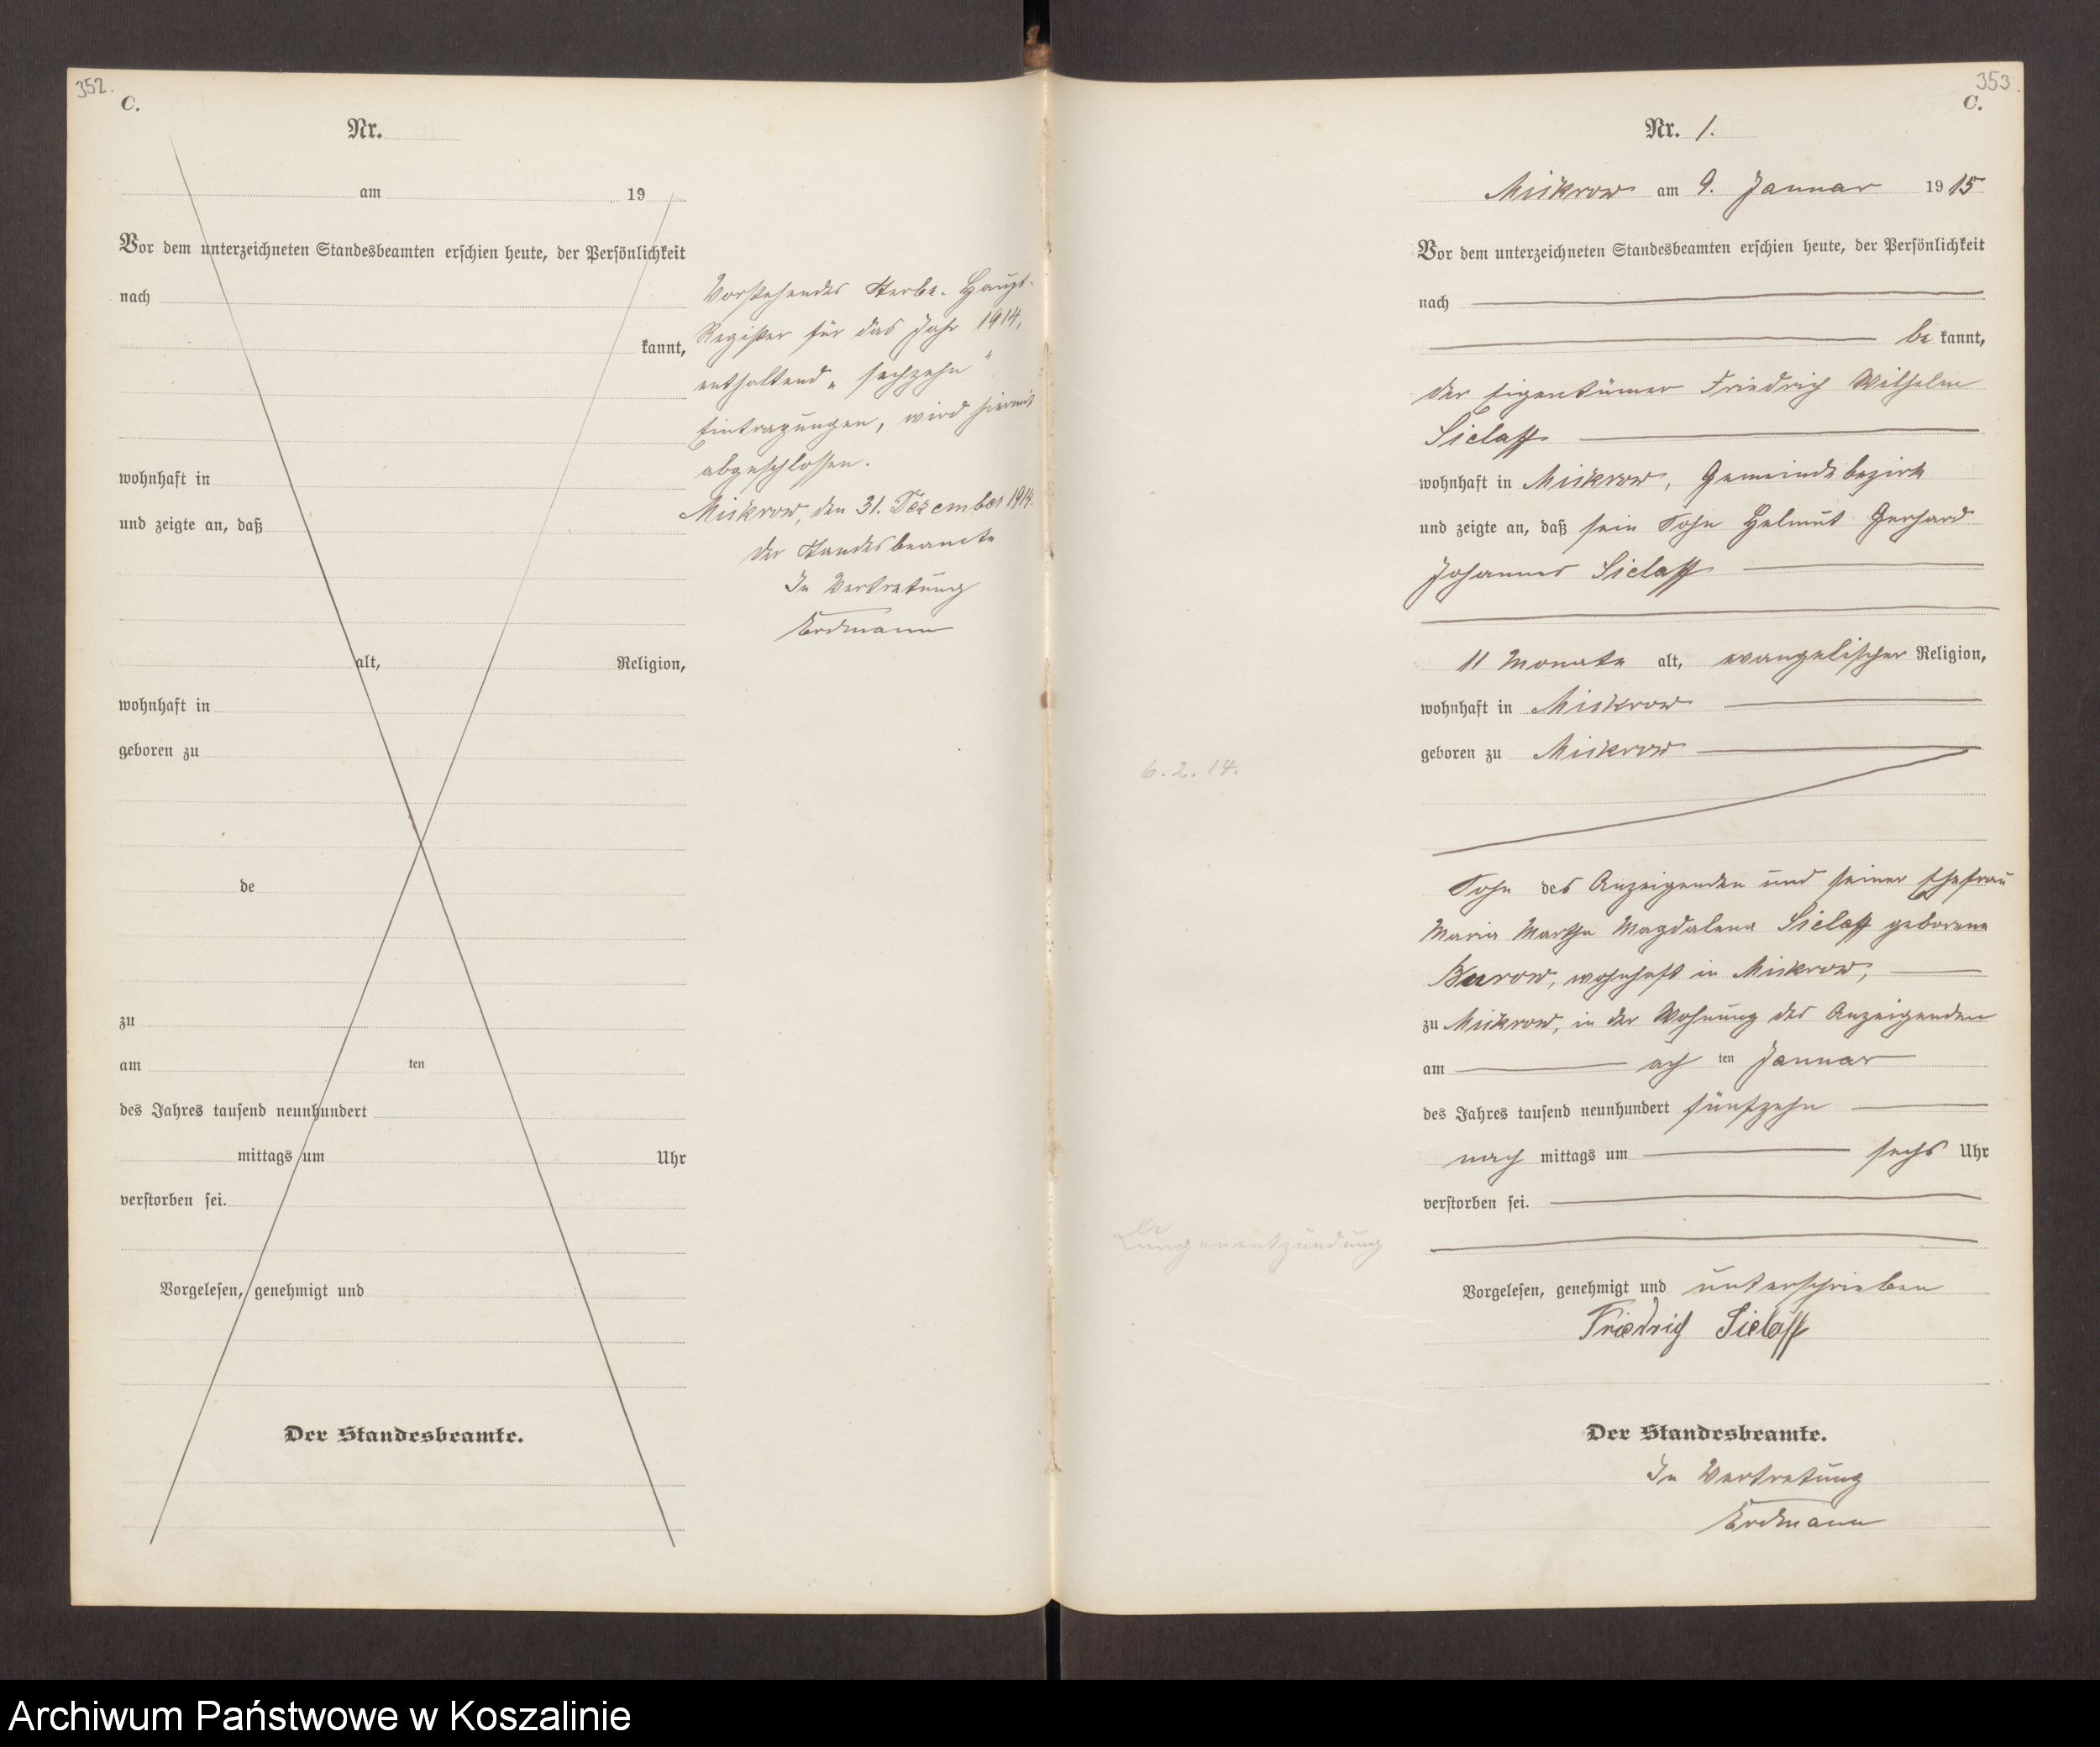 352.
C.
Nr.
am 19
Vor dem unterzeichneten Standesbeamten erschien heute, der Persönlichkeit
nach
kannt,
wohnhaft in
und zeigte an, daß
alt, Religion,
wohnhaft in
geboren zu
de
zu
am ten
des Jahres tausend neunhundert
mittags um Uhr
verstorben sei.
Vorgelesen, genehmigt und
Der Standesbeamte.
Vorstehendes Sterbe-Haupt-
Register für das Jahr 1914,
enthaltend „sechzehn"
Eintragungen, wird hiermit
abgeschlossen.
Mickrow, den 31. Dezember 1914.
Der Standesbeamte
In Vertretung
Erdmann
353.
C.
Nr. 1.
Mickrow am 9. Januar 1915
Vor dem unterzeichneten Standesbeamten erschien heute, der Persönlichkeit
nach
be kannt,
der Eigentümer Friedrich Wilhelm
Sielaff
wohnhaft in Mickrow, Gemeindebezirk
und zeigte an, daß sein Sohn Helmut Gerhard
Johannes Sielaff
11 Monate alt, evangelischer Religion,
wohnhaft in Mickrow
geboren zu Mickrow
6.2.14.
Sohn des Anzeigenden und seiner Ehefrau
Maria Martha Magdalena Sielaff geborene
Burow, wohnhaft in Mickrow,
zu Mickrow, in der Wohnung des Anzeigenden
am ach ten Januar
des Jahres tausend neunhundert fünfzehn
nach mittags um sechs Uhr
verstorben sei.
Lungenentzündung
Vorgelesen, genehmigt und unterschrieben
Friedrich Sielaff
Der Standesbeamte.
In Vertretung
Erdmann
Archiwum Państwowe w Koszalinie